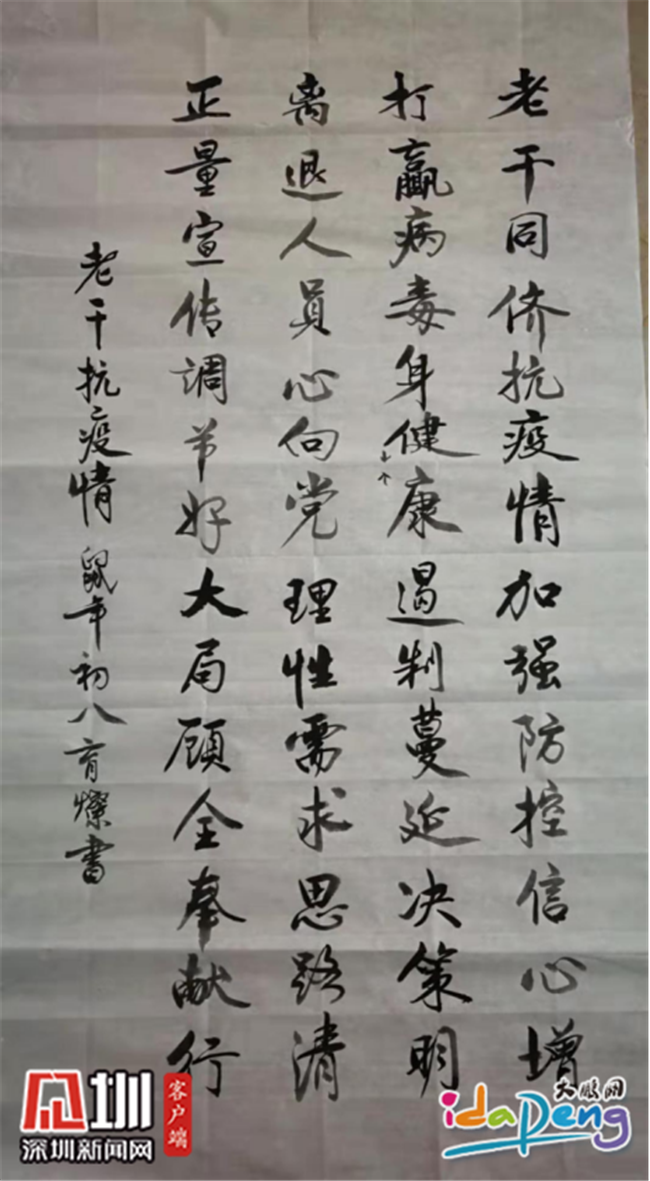 老干同侪抗疫情加强防控信心增
打赢病毒身健康遏制蔓延决策明
离退人员心向党理性需求思路清
正量宣传调节好大局顾全奉献行
老干抗疫情 鼠年初八育燦書
深圳
深圳新闻网
客户端
大鹏网
idapeng